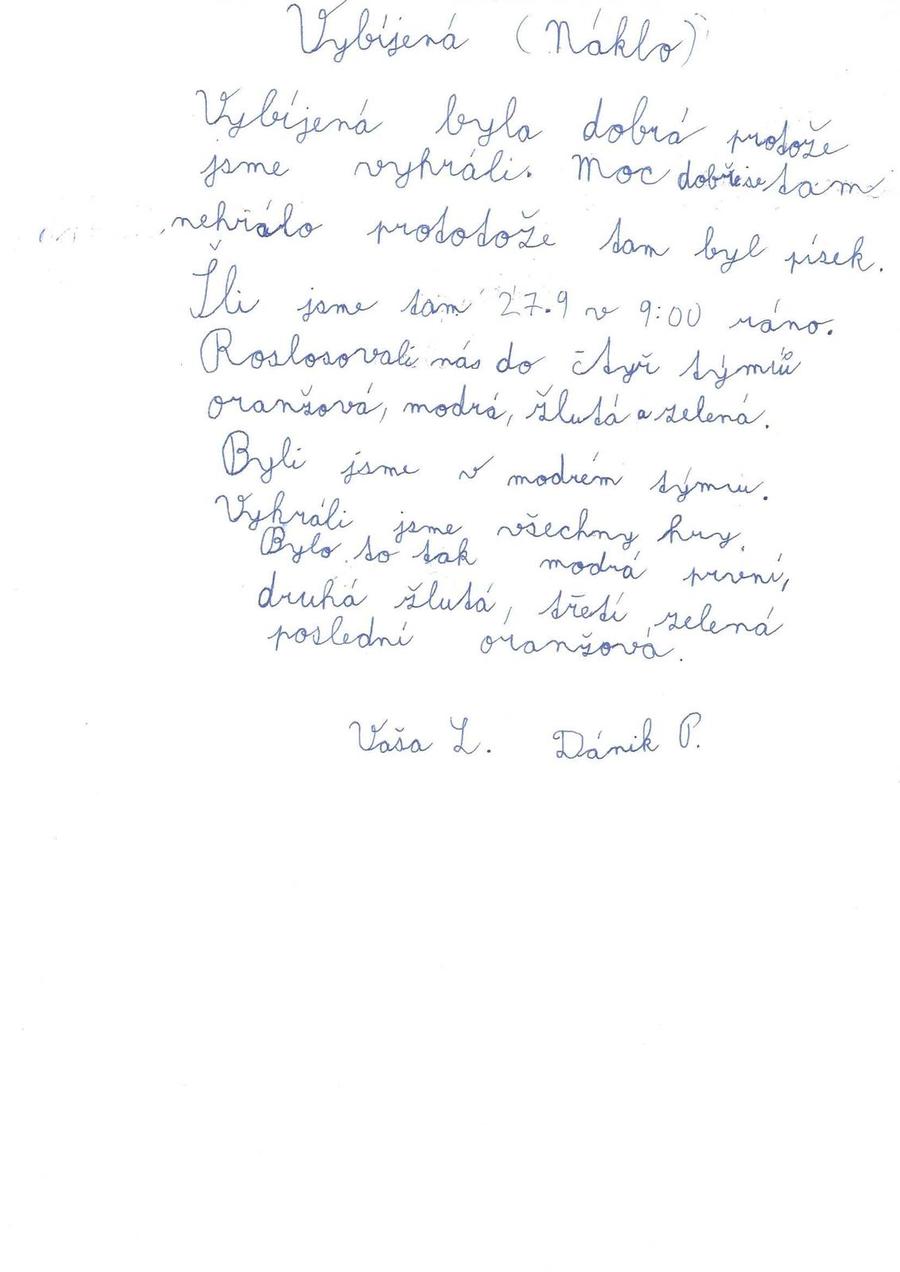 Vybíjená (Náklo)
Vybíjená byla dobrá protože
jsme vyhráli. Moc dobře se tam
nehrálo prototože tam byl písek.
Šli jsme tam 27.9 v 9:00 ráno.
Roslosovali nás do čtyř týmů
oranžová, modrá, žlutá a zelená.
Byli jsme v modrém týmu.
Vyhráli jsme všechny hry.
Bylo to tak modrá první,
druhá žlutá, třetí zelená
poslední oranžová.
Vaša L. Dánik P.